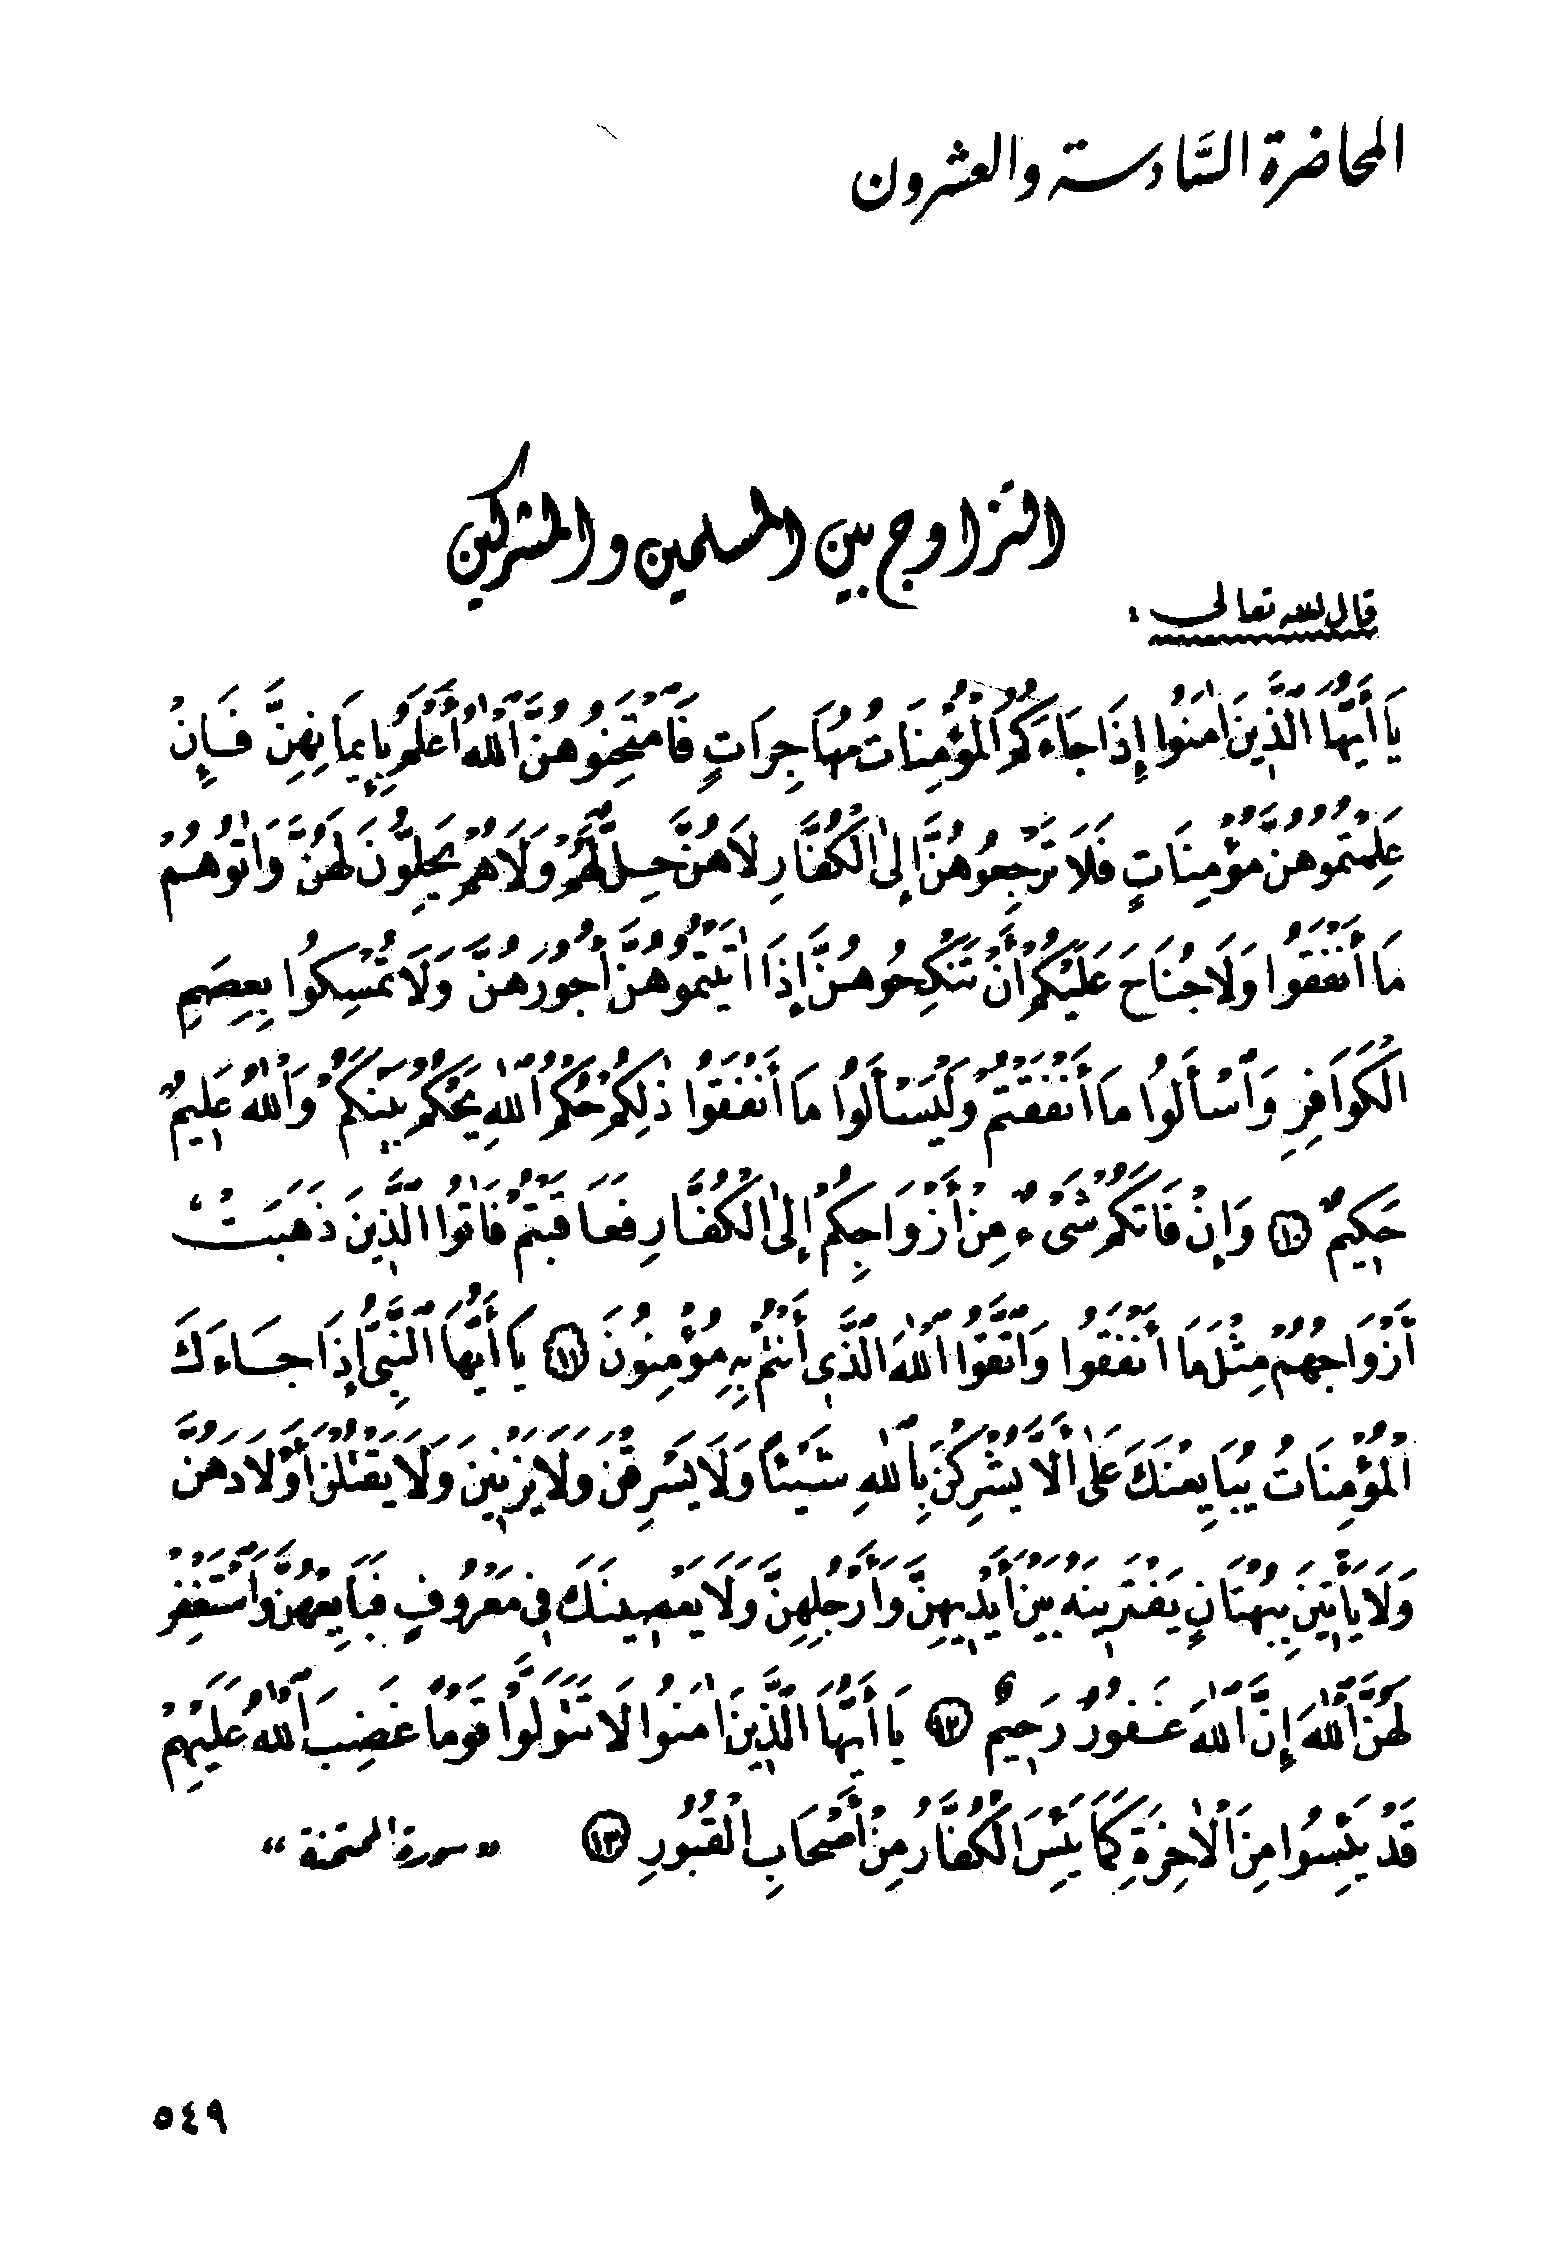 المحاضرة السَّادسة والعشرون
التزاوج بين المسلمين والمشركين
قال الله تعالى :
يَا أَيُّهَا الَّذِينَ اٰمَنُوا إِذَا جَاءَكُمُ الْمُؤْمِنَاتُ مُهَاجِرَاتٍ فَامْتَحِنُوهُنَّ اَللّٰهُ أَعْلَمُ بِإِيمَانِهِنَّ فَإِنْ
عَلِمْتُمُوهُنَّ مُؤْمِنَاتٍ فَلَا تَرْجِعُوهُنَّ إِلَى الْكُفَّارِ لَا هُنَّ حِلٌّ لَهُمْ وَلَا هُمْ يَحِلُّونَ لَهُنَّ وَاٰتُوهُمْ
مَا أَنْفَقُوا وَلَا جُنَاحَ عَلَيْكُمْ أَنْ تَنْكِحُوهُنَّ إِذَا اٰتَيْتُمُوهُنَّ أُجُورَهُنَّ وَلَا تُمْسِكُوا بِعِصَمِ
الْكَوَافِرِ وَاسْأَلُوا مَا أَنْفَقْتُمْ وَلْيَسْأَلُوا مَا أَنْفَقُوا ذٰلِكُمْ حُكْمُ اللّٰهِ يَحْكُمُ بَيْنَكُمْ وَاللّٰهُ عَلِيمٌ
حَكِيمٌ ١٠ وَإِنْ فَاتَكُمْ شَىْءٌ مِنْ أَزْوَاجِكُمْ إِلَى الْكُفَّارِ فَعَاقَبْتُمْ فَاٰتُوا الَّذِينَ ذَهَبَتْ
أَزْوَاجُهُمْ مِثْلَ مَا أَنْفَقُوا وَاتَّقُوا اللّٰهَ الَّذِى أَنْتُمْ بِهِ مُؤْمِنُونَ ١١ يَا أَيُّهَا النَّبِىُّ إِذَا جَاءَكَ
الْمُؤْمِنَاتُ يُبَايِعْنَكَ عَلَى أَلَّا يُشْرِكْنَ بِاللّٰهِ شَيْئًا وَلَا يَسْرِقْنَ وَلَا يَزْنِينَ وَلَا يَقْتُلْنَ أَوْلَادَهُنَّ
وَلَا يَأْتِينَ بِبُهْتَانٍ يَفْتَرِينَهُ بَيْنَ أَيْدِيهِنَّ وَأَرْجُلِهِنَّ وَلَا يَعْصِينَكَ فِى مَعْرُوفٍ فَبَايِعْهُنَّ وَاسْتَغْفِرْ
لَهُنَّ اللّٰهَ إِنَّ اللّٰهَ غَفُورٌ رَحِيمٌ ١٢ يَا أَيُّهَا الَّذِينَ اٰمَنُوا لَا تَتَوَلَّوْا قَوْمًا غَضِبَ اللّٰهُ عَلَيْهِمْ
قَدْ يَئِسُوا مِنَ الْاٰخِرَةِ كَمَا يَئِسَ الْكُفَّارُ مِنْ أَصْحَابِ الْقُبُورِ ١٣ « سورة الممتحنة »
٥٤٩